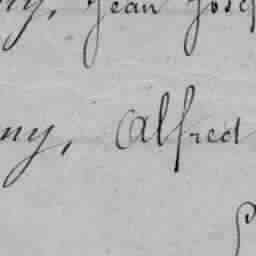 ny, Jean Jose
ny, Alfred